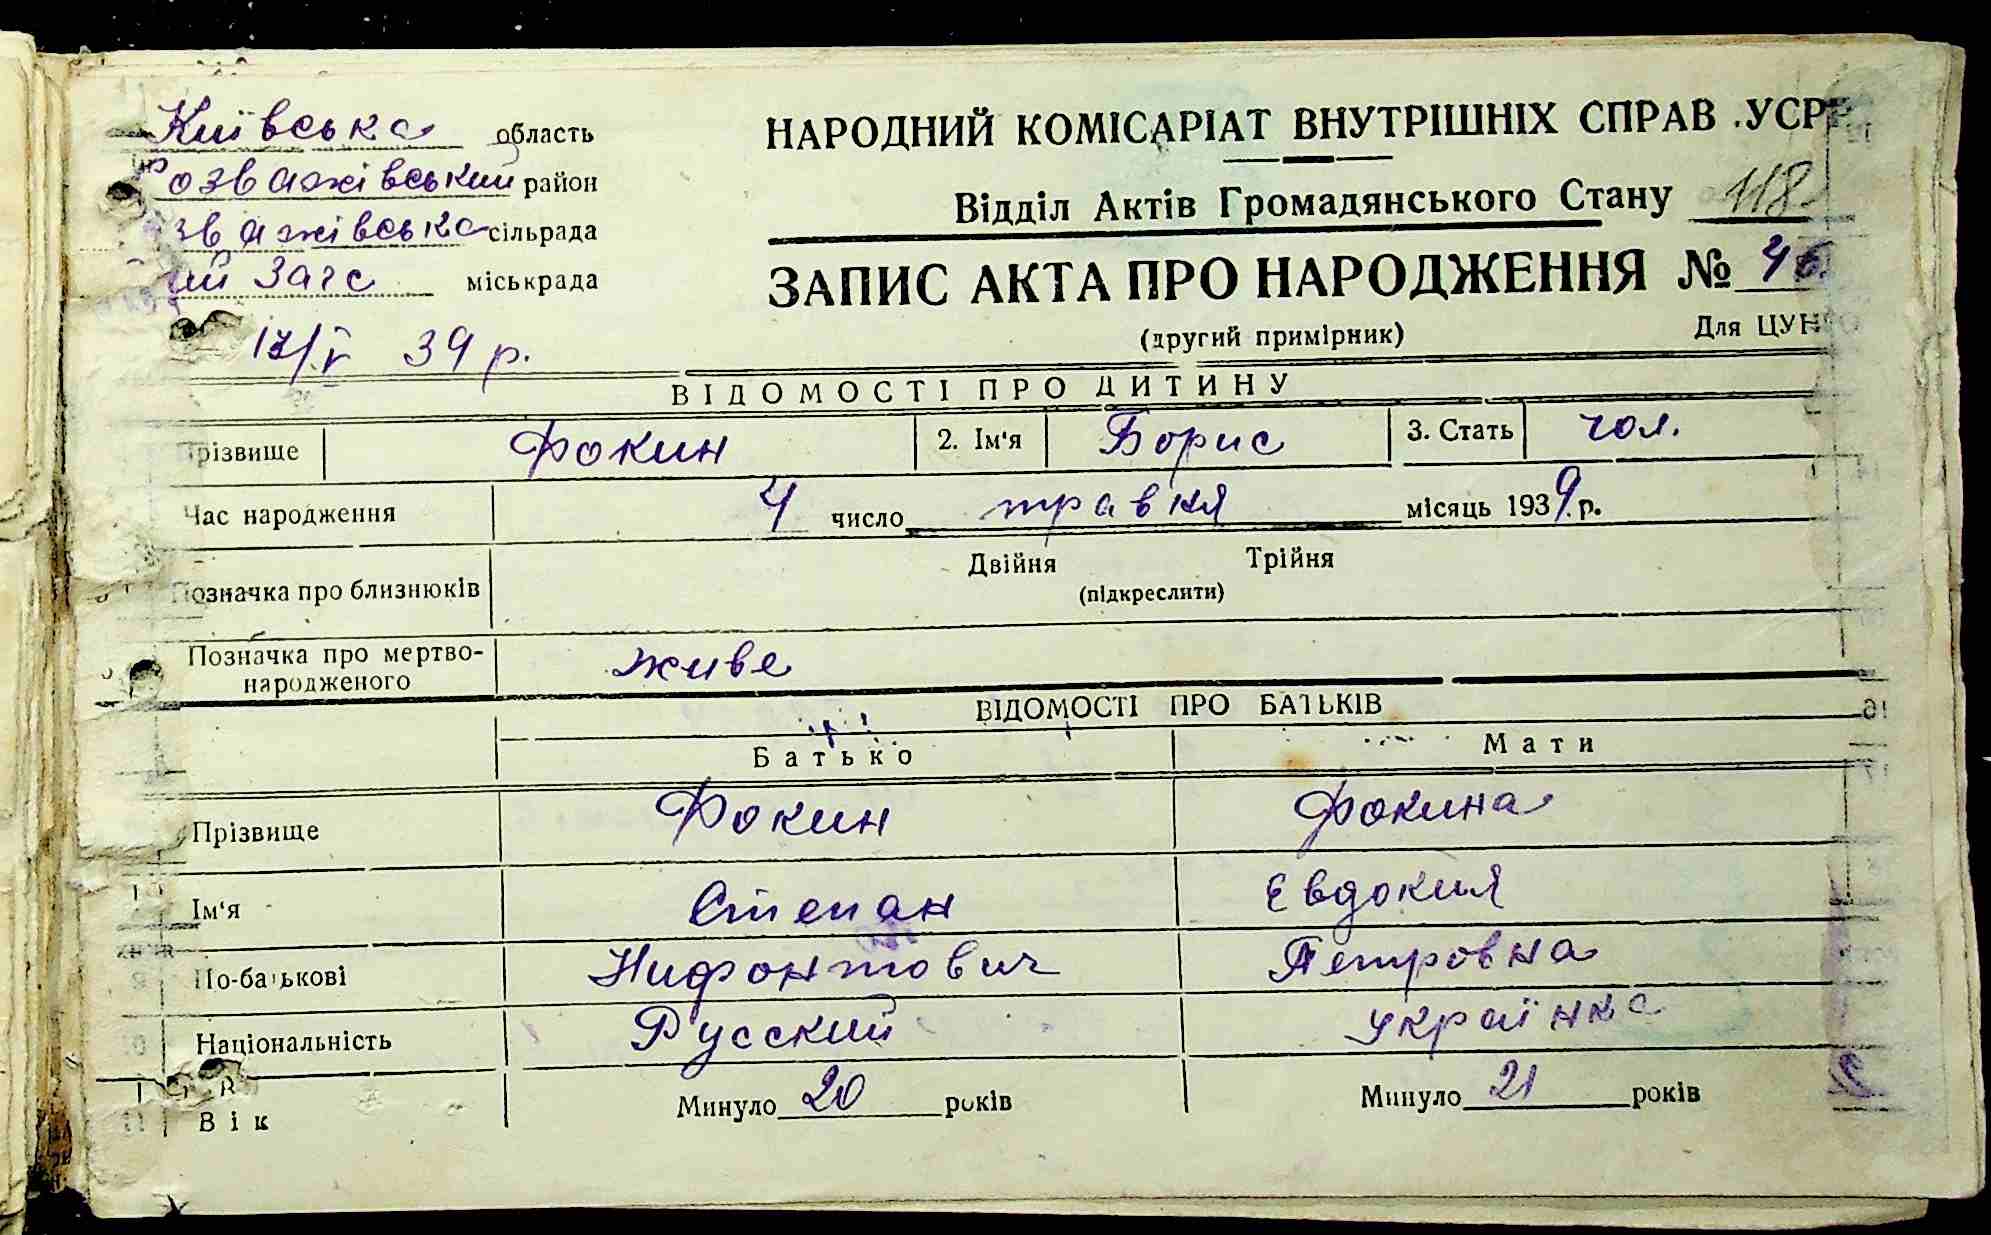 Київська область
Розважівський район
зважівська сільрада
ий Загс міськрада
39 р.
НАРОДНИЙ КОМІСАРІАТ ВНУТРІШНІХ СПРАВ УСРР
Відділ Актів Громадянського Стану 118
ЗАПИС АКТА ПРО НАРОДЖЕННЯ № 46.
(другий примірник) Для ЦУНГО
ВІДОМОСТІ ПРО ДИТИНУ
Прізвище Фокин 2. Ім'я Борис 3. Стать чол.
Час народження 4 число травня місяць 1939 р.
Позначка про близнюків Двійня Трійня
(підкреслити)
Позначка про мертво-
народженого живе
ВІДОМОСТІ ПРО БАТЬКІВ
Батько Мати
Прізвище Фокин Фокина
Ім'я Степан Евдокия
По-батькові Нифонтович Петровна
Національність Русский українка
Вік Минуло 20 років Минуло 21 років